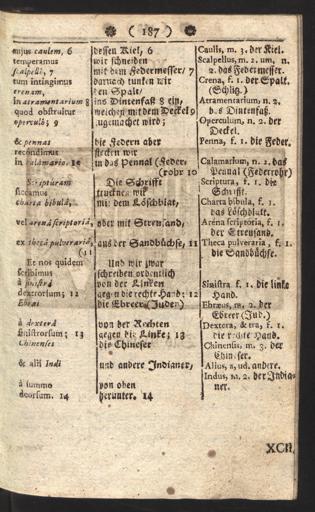 ( 187 )
cujus caulem, 6
temperamus
scalpello, 7
tum intingimus
crenam,
in atramentarium 8
quod obstruitur
operculo; 9
& pennas
recondimus
in calamario. 10
Scripturam
siccamus
charta bibula,
vel arenâ scriptoriâ,
ex thecâ pulverariâ,
(11
Et nos quidem
scribimus
à sinistrâ
dextrorsum; 12
Ebræi
à dexterâ
sinistrorsum; 13
Chinenses
& alii Indi
à summo
deorsum. 14
dessen Kiel, 6
wir schneiden
mit dem Federmesser/ 7
darnach tunken wir
den Spalt/
ins Dintenfaß 8 ein,
welches mit dem Deckel 9
zugemachet wird;
die Federn aber
stecken wir
in das Pennal (Feder-
rohr 10
Die Schrift
trucknen wir
mit dem Löschblat,
oder mit Streusand,
aus der Sandbüchse, 11
Und wir zwar
schreiben ordentlich
von der Linken
gegen die rechte Hand; 12
die Ebreer (Juden)
von der Rechten
gegen die Linke; 13
die Chineser
und andere Indianer,
von oben
herunter. 14
Caulis, m. 3. der Kiel.
Scalpellus, m. 2. um, n.
2. das Federmesser.
Crena, f. 1. der Spalt.
(Schlitz.)
Atramentarium n. 2.
das Dintenfaß.
Operculum, n. 2. der
Deckel.
Penna, f. 1. die Feder.
Calamarium, n. 2. das
Penal (Federrohr)
Scriptura, f. 1. die
Schrift.
Charta bibula, f. 1.
das Löschblatt.
Arena scriptoria, f. 1.
der Streusand.
Theca pulveraria, f. 1.
die Sandbüchse.
Sinistra f. 1. die linke
Hand.
Ebræus, m. 2. der
Ebreer (Jud.)
Dextera, & tra, f. 1.
die rechte Hand.
Chinensis, m. 3. der
Chineser.
Alius, a, ud. andere.
Indus, m. 2. der India-
ner.
XCII.